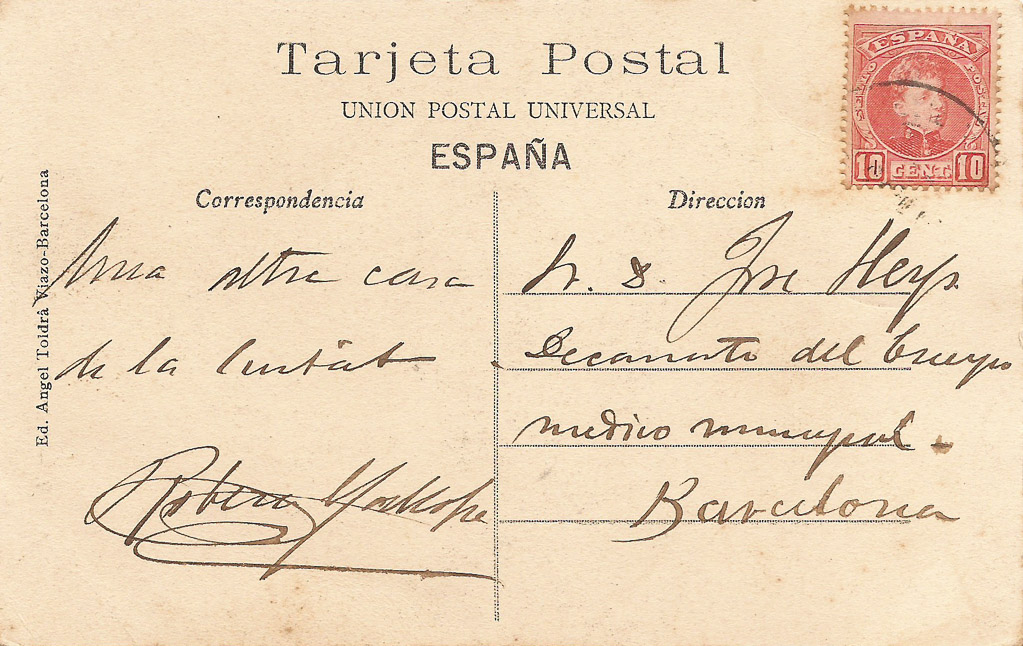 Tarjeta Postal
UNION POSTAL UNIVERSAL
ESPAÑA
ESPAÑA
10 CENT 10
Ed. Angel Toldrá Viazo-Barcelona
Correspondencia
Una altra cara
de la
Direccion
Sr. D.
Decanato del Cuerpo
medico municipal.
Barcelona